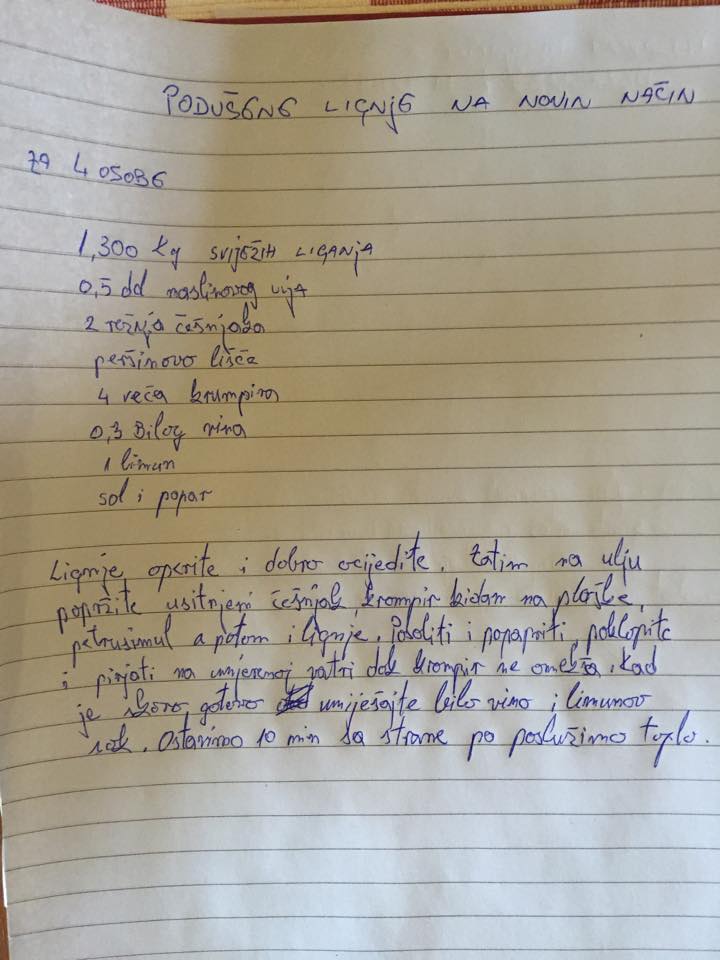 PODUŠENE LIGNJE NA NOVIN NAČIN
ZA 4 OSOBE
1,300 kg SVIJEŽIH LIGANJA
0,5 dd maslinovog ulja
2 režnja češnjaka
peršinovo lišće
4 veča krumpira
0,3 Bilog vina
1 limun
sol i popar
Lignje operite i dobro ocijedite. Zatim na ulju
popržite usitnjeni češnjak, krompir kidan na ploške,
petrusimul a potom i lignje. Posoliti i popapriti, poklopite
i pirjati na umjerenoj vatri dok krompir ne omekša. Kad
je skoro gotovo umiješajte bilo vino i limunov
sok. Ostavimo 10 min sa strane po poslužimo toplo.